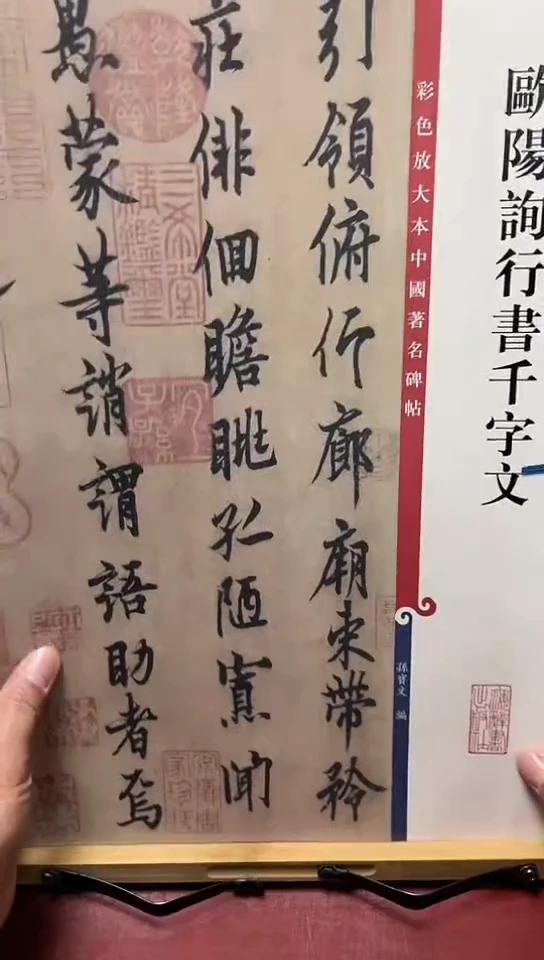 歐陽詢行書千字文
彩色放大本中國著名碑帖
孫寶文 編
引領俯仰廊廟束帶矜
莊徘佪瞻眺孤陋寡聞
愚蒙等誚謂語助者焉